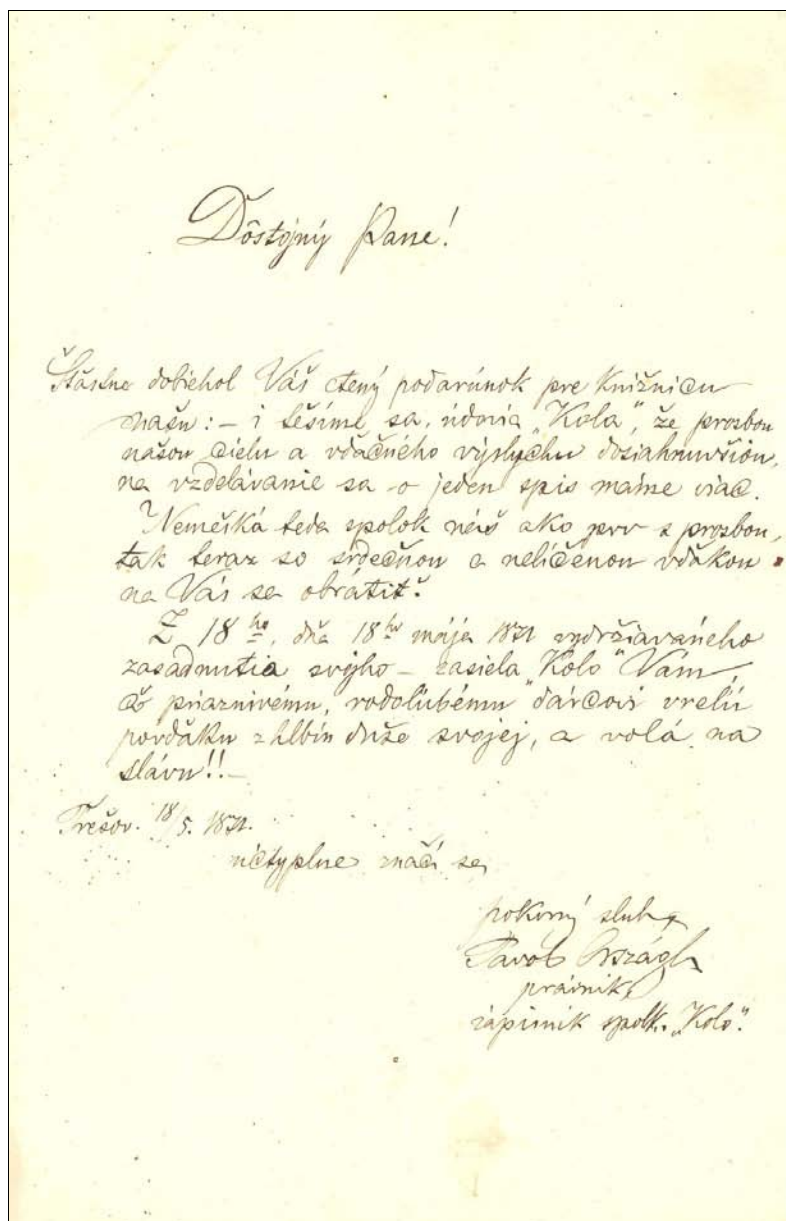 Dôstojný Pane!
Šťastne dobiehol Váš ctený podarúnok pre knižnicu
našu: – i tešíme sa, údovia „Kola”, že prosbou
našou cielu a vďačného výslychu dosiahnuvšiou,
na vzdelávanie sa – o jeden spis máme viac.
Nemešká teda spolok náš ako prv s prosbou,
tak teraz so srdečnou a nelíčenou vďakou
na Vás sa obrátiť.
Z 18ho, dňa 18ho mája 1871 vydržiavaného
zasadnutia svojho – zasiela „Kolo” Vám,
čo priaznivému, rodoľubému darcovi vrelú
povďaku z hlbín duše svojej, a volá na
slávu!! –
Prešov. 18/5. 1871.
úctyplne značí sa
pokorný sluha
Pavol Országh
právnik,
zápisník spolk. „Kolo”.